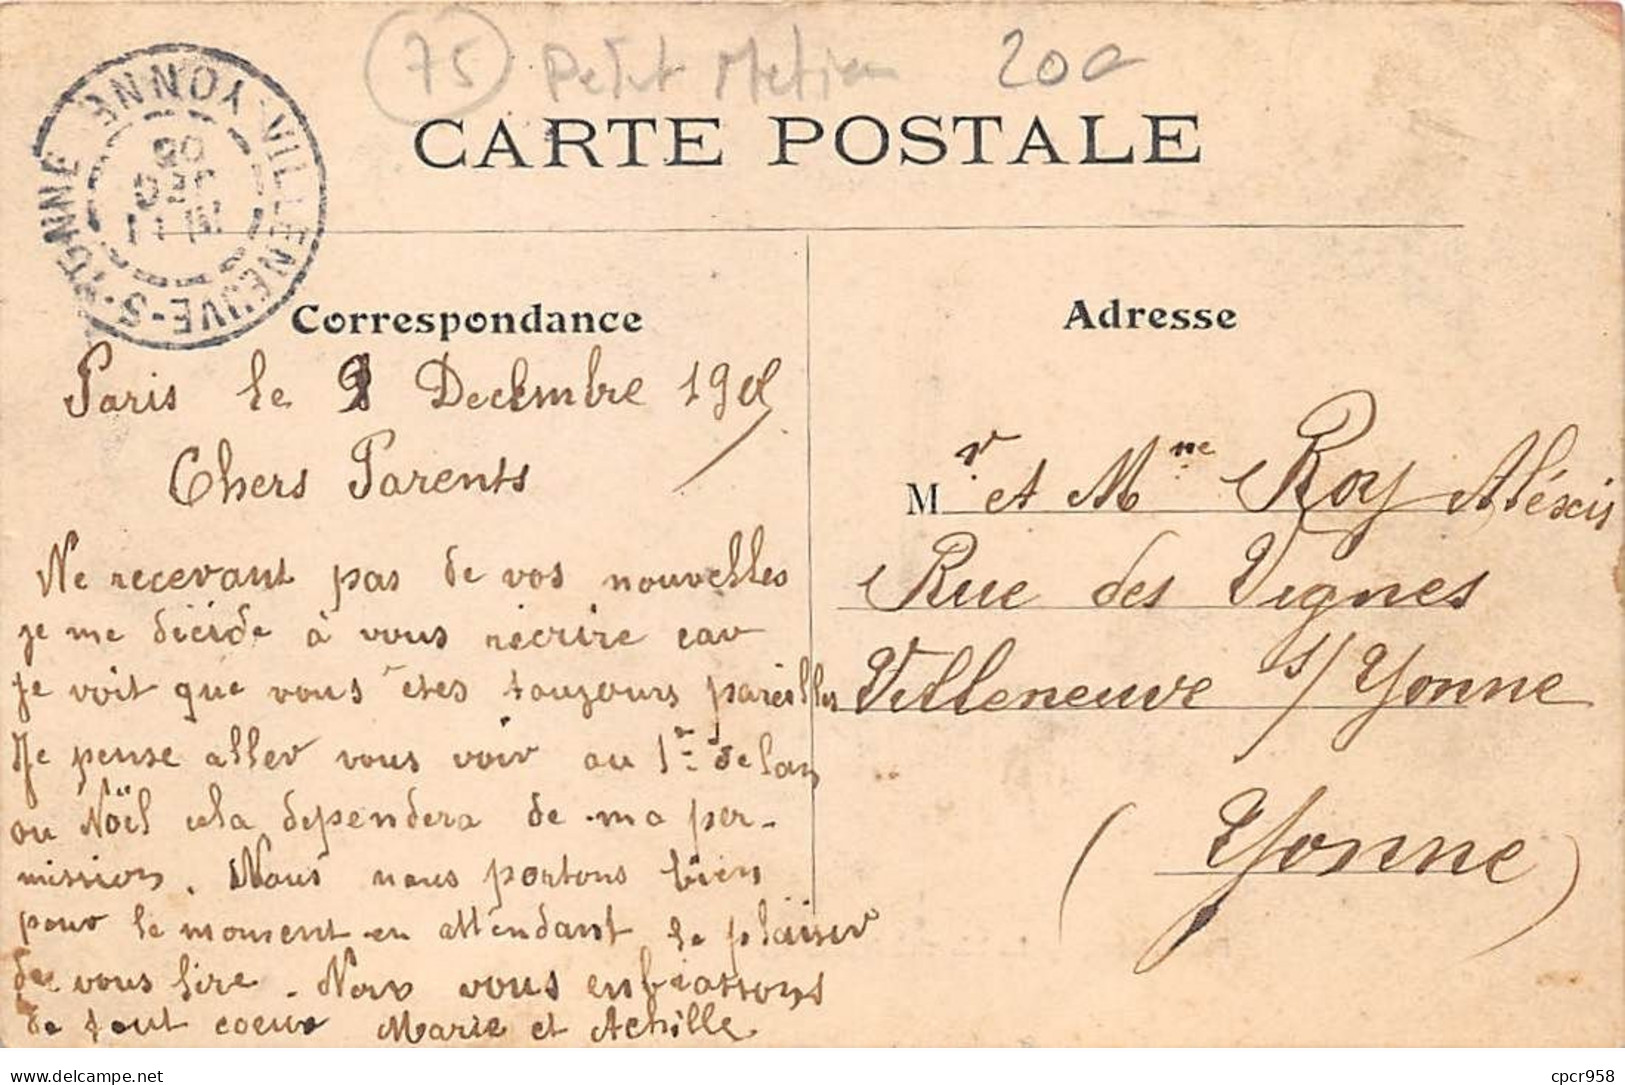 75 Petit Metier 200
CARTE POSTALE
VILLENEUVE-S-YONNE YONNE
11 DEC 05
Correspondance
Paris le Decembre 190
Chers Parents
Ne recevant pas de vos nouvelles
je me décide à vous récrire car
je voit que vous êtes toujours pareilles
Je pense aller vous voir au 1er de lan
ou Noël cela dependera de ma per-
mission. Nous nous portons bien
pour le moment en attendant le plaisir
de vous lire. Nous vous enbrassons
de tout coeur Marie et Achille
Adresse
Mr et Mme Roy Aléxis
Rue des Vignes
Villeneuve s/Yonne
(Yonne)
cpcr958